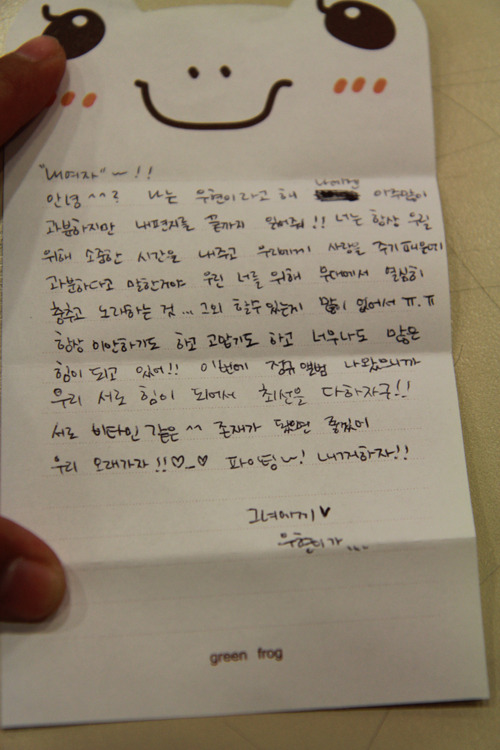 "내여자"~!!
안녕^^? 나는 우현이라고 해 나에겐 아주많이
과분하지만 내편지를 끝까지 읽어줘!! 너는 항상 우릴
위해 소중한 시간을 내주고 우리에게 사랑을 주기때문에
과분하다고 말한거야 우린 너를 위해 무대에서 열심히
춤추고 노래하는 것... 그외 할수있는게 많이 없어서 ㅠ.ㅠ
항상 미안하기도 하고 고맙기도 하고 너무나도 많은
힘이 되고 있어!! 이번에 정규앨범 나왔으니까
우리 서로 힘이 되어서 최선을 다하자구!!
서로 비타민 같은^^ 존재가 됐으면 좋겠어
우리 오래가자!!♡_♡ 파이팅~! 내꺼하자!!
그녀에게♥
우현이가...
green frog